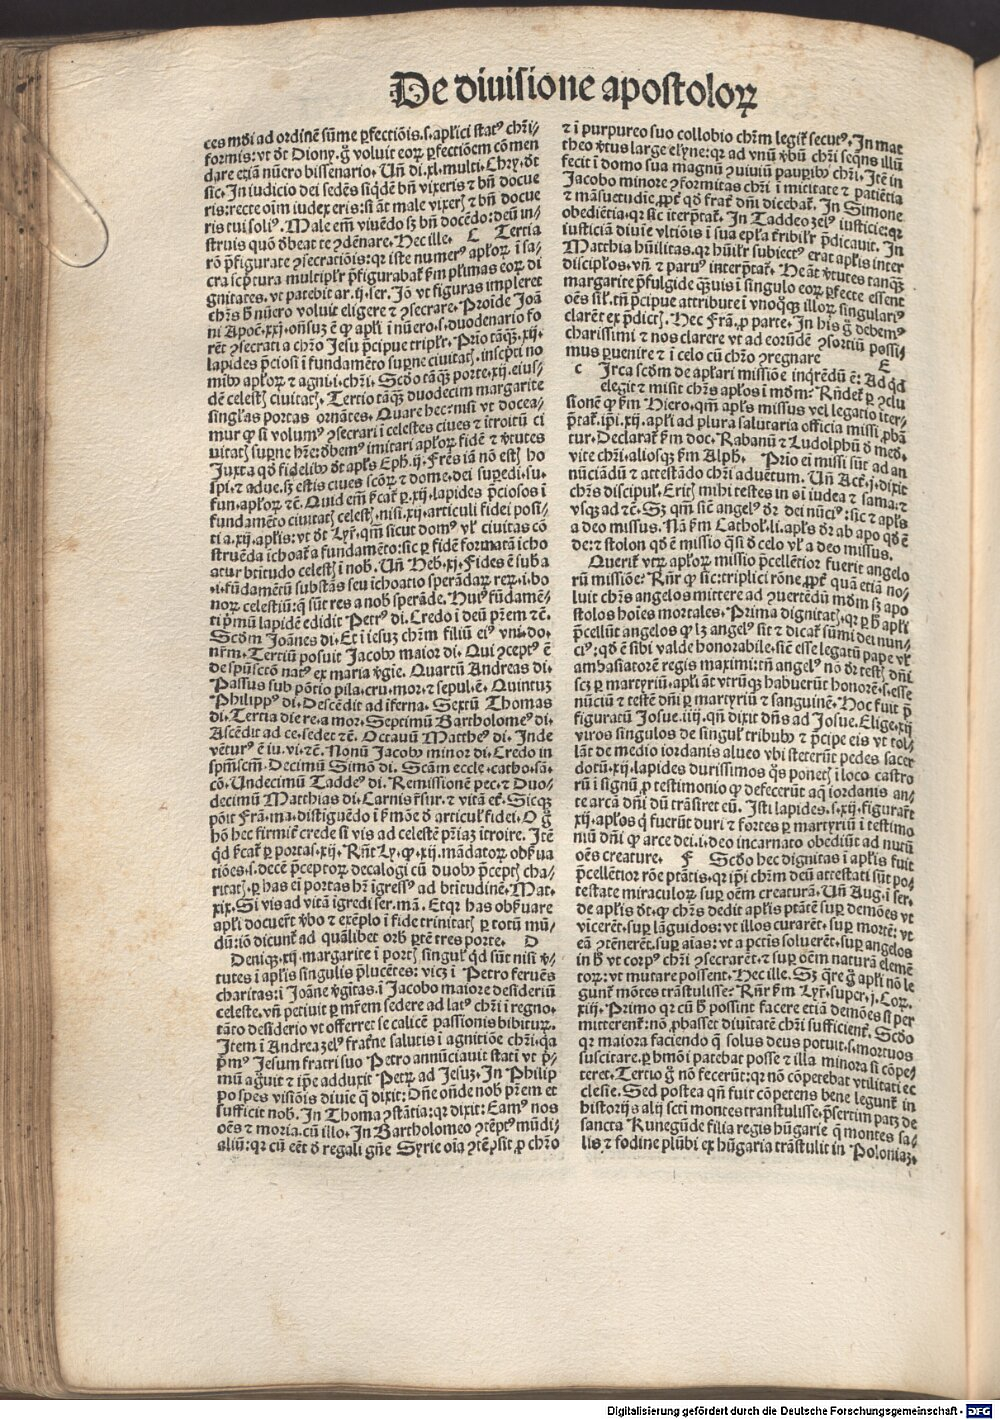 De diuisione apostoloꝝ
ces mũdi ad ordinẽ sũme ꝑfectiõis.s.apľici statꝰ chři/
formis: vt dt Diony.g̃ voluit eoꝝ ꝑfectiõem cõmen
dare etiã nũero bissenario. Uñ di.xl.multi. Chry.dt
sic. In iudicio dei sedẽs siq̃dẽ bñ vixeris ⁊ bñ docue
ris: recte oĩm iudex eris: si ãt male vixerƺ ⁊ bñ docue
ris tui soliꝰ. Male em̃ viuẽdo sƺ bñ docẽdo: deũ in/
struis quõ dẽbeat te ꝯdẽnare. Hec ille. C Tertia
rõ p̃figurate ꝯsecratiõis: qꝛ iste numerꝰ apľoꝝ ĩ sa/
cra scp̃tura multipľr p̃figurabat̃ ẜm pľimas eoꝝ di
gnitates. vt patebit ar.ij.ser. Jõ vt figuras impleret
chřs ħ nũero voluit eligere ⁊ ꝯsecrare. Proĩde Joã
ni Apoč.xxj.oñsuꝫ ẽ ꝙ apľi ĩ nũero.s.duodenario fo
rẽt ꝯsecrati a chřo Jesu p̃cipue tripľr. Prĩo tãq̃ꝫ.xij.
lapides p̃ciosi ĩ fundamẽto suꝑne ciuitatƺ.inscp̃ti no
mĩbꝰ apľoꝝ ⁊ agni.i.chři. Scđo tãq̃ꝫ porte.xij.eius/
dẽ celestƺ ciuitatƺ. Tertio tãq̃ꝫ duodecim margarite
singľas portas ornãtes. Quare hec: nisi vt docea/
mur ꝙ si volumꝰ ꝯsecrari ĩ celestes ciues ⁊ ĩtroitũ ci
uitatƺ suꝑne hr̃e: dẽbemꝰ imitari apľoꝝ fidẽ ⁊ v̓tutes
Juxta qđ fidelibꝰ dt apľs Eph.ij. Fr̃es iã nõ estƺ ho
spi.⁊ adue.sƺ estis ciues scõꝝ ⁊ dome.dei suꝑedi.su.
fun.apľoꝝ ⁊č. Quid em̃ ẜcat̃ ꝑ.xij.lapides p̃ciosos ĩ
fundamẽto ciuitatƺ celestƺ.nisi.xij.articuli fidei posi/
ti a.xij.apľis: vt dt Lyr̃.qm̃ sicut domꝰ vľ ciuitas cõ
struẽda ĩchoat̃ a fundamẽto: sic ꝑ fidẽ formatã ĩcho
atur btĩtudo celestƺ ĩ nob. Uñ Heb.xj. Fides ẽ subã
.i.fundãmẽtũ substãs seu ĩchoatio sperãdaꝝ rerꝝ.i.bo
noꝝ celestiũ: q̃ sũt res a nob sperãde. Huiꝰ fũdãmẽ/
ti p̃mũ lapidẽ edidit Petrꝰ di. Credo ĩ deũ pr̃em ⁊č.
Scđm Joãnes di. Et ĩ iesuꝫ chřm filiũ eiꝰ vni.do.
nr̃m. Tertiũ posuit Jacobꝰ maior di. Qui ꝯceptꝰ ẽ
de spũscto natꝰ ex maria v̓gĩe. Quartũ Andreas di.
Passus sub põtio pila.cru.mor.⁊ sepul.ẽ. Quintuꝫ
Philippꝰ di. Descẽdit ad ĩferna. Sextũ Thomas
di. Tertia die re.a mor. Septimũ Bartholomeꝰ di.
Ascẽdit ad ce.sedet ⁊č. Octauũ Mattheꝰ di. Inde
vẽturꝰ ẽ iu.vi.⁊č. Nonũ Jacobꝰ minor di. Credo in
spm̃scm̃. Decimũ Simõ di. Scãm eccle.catho.sã.
cõ. Undecimũ Taddeꝰ di. Remissionẽ pec.⁊ Duo/
decimũ Matthias di. Carnis r̃sur.⁊ vitã et̃. Sicqꝫ
põit Frã.ma.distiguẽdo ĩ ẜmõe đ articuľ fidei. O g̃
hõ hec firmit̃ crede si vis ad celestẽ pr̃iaꝫ ĩtroire. Itẽ
qđ ẜcat̃ ꝑ portas.xij. Rñt Ly.ꝙ.xij.mãdatoꝝ obẜua
tiões.s.decẽ p̃ceptoꝝ decalogi cũ duobꝰ p̃ceptƺ cha/
ritatƺ.ꝑ has eĩ portas hr̃ ĩgressꝰ ad btĩtudinẽ. Mat.
xix. Si vis ad vitã ĩgredi ser.mã. Etqꝛ has obẜuare
apľi docuer̃t v̓bo ⁊ exẽplo ĩ fide trinitatƺ ꝑ totũ mũ/
dũ: iõ dicunt̃ ad quãlibet orbƺ ꝑtẽ tres porte. D
Deniqꝫ.xij.margarite ĩ portƺ singuľ qđ sũt nisi v̓/
tutes ĩ apľis singulis p̃lucẽtes: vicƺ ĩ Petro feruẽs
charitas: ĩ Joãne v̓gitas.ĩ Jacobo maiore desideriũ
celeste.vñ petiuit ꝑ mr̃em sedere ad latꝰ chři ĩ regno.
tãto desiderio vt offerret se calicẽ passionis bibituꝝ.
Item ĩ Andrea zelꝰ frat̃ne salutis ĩ agnitiõe chři.qꝛ
p̃mꝰ Jesum fratri suo Petro annũciauit stati vt p̃/
mũ ag̃uit ⁊ ip̃e adduxit Petꝝ ad Jesuꝫ. In Philip
po spes visiõis diuie q̃ dixit: Dñe oñde nob pr̃em et
sufficit nob. In Thoma ꝯstãtia: qꝛ dixit: Eamꝰ nos
oẽs ⁊ moria.cũ illo. In Bartholomeo ꝯtẽptꝰ mũdi/
aliũ: qꝛ cũ eẽt đ regali gñe Syrie oĩa ꝯtẽpsit ꝓ chřo
⁊ ĩ purpureo suo collobio chřm legit̃ secutꝰ. In mat
theo v̓tus large elyne: qꝛ ad vnũ v̓bũ chři seq̃ns illũ
fecit ĩ domo sua magnũ ꝯuiuiũ pauꝑibꝰ chři. Itẽ in
Jacobo minore ꝯformitas chři ĩ mititate ⁊ patiẽtia
⁊ mãsuetudĩe, ꝓpt̃ qđ frat̃ dñi dicebat̃. In Simone
obediẽtia.qꝛ sic iterp̃tat̃. In Taddeo zelꝰ iusticie: qꝛ
iusticiã diuie vltiõis ĩ sua epľa t̃ribiľr p̃dicauit. In
Matthia hũilitas.qꝛ hũiľr subiectꝰ erat apľis inter
discipľos.vñ ⁊ paruꝰ interp̃tat̃. He ãt v̓tutes tanq̃ꝫ
margarite p̃fulgide q̃ꝫuis ĩ singulo eoꝝ ꝑfecte essent
oẽs siľ.tñ p̃cipue attribute ĩ vnoq̃qꝫ illoꝝ singulariꝰ
clarẽt ex p̃dictƺ. Hec Frã.ꝓ parte. In his g̃ debemꝰ
charissimi ⁊ nos clarere vt ad eorũdẽ ꝯsortiũ possi/
mus ꝑuenire ⁊ ĩ celo cũ chřo ꝯregnare E
c Irca scđm de apľari missiõe inq̃rẽdũ ẽ: Ad qđ
elegit ⁊ misit chřs apľos ĩ mũdm? Rñdet̃ ꝑ ꝯclu
sionẽ ꝙ ẜm Hiero.qm̃ apľs missus vel legatio iter/
p̃tat̃.ip̃i.xij.apľi ad plura salutaria officia missi ꝓbã
tur. Declarat̃ ẜm doc. Rabanũ ⁊ Ludolphũ đ med.
vite chři.aliosqꝫ ẜm Alph. Prio ei missi sũt ad an
nũciãdũ ⁊ attestãdo chři aduẽtum. Uñ Act̃.j.dixit
chřs discipuľ. Eritƺ mihi testes in oĩ iudea ⁊ sama.⁊
vsqꝫ ad ⁊č. Sƺ qm̃ siẽ angelꝰ dr̃ dei nũciꝰ: sic ⁊ apľs
a deo missus. Nã ẜm Cathoľ.li.apľs dr̃ ab apo qđ ẽ
de: ⁊ stolon qđ ẽ missio q̃si đ celo vľ a deo missus.
Querit̃ vtꝝ apľoꝝ missio p̃cellẽtior fuerit angelo
rũ missiõe? Rñr ꝙ sic: triplici rõne, ꝓpt̃ quã etiã no/
luit chřs angelos mittere ad ꝯuertẽdũ mũdm sƺ apo
stolos hoĩes mortales. Prima dignitatƺ.qꝛ ꝑ ħ apľi
p̃cellũt angelos ꝙ lƺ angelꝰ sit ⁊ dicat̃ sũmi dei nun/
ciꝰ: qđ ẽ sibi valde honorabile.siẽ esse legatũ pape vľ
ambasiatorẽ regis maximi: tñ angelꝰ nõ dr̃ testƺ dñi
scƺ ꝑ martyriũ. apľi ãt vtrũqꝫ habuerũt honorẽ.s.esse
nũciũ ⁊ testẽ dñi ꝑ martyriũ ⁊ sanguinẽ. Hoc fuit p̃
figuratũ Josue.iiij.qñ dixit dñs ad Josue. Elige.xij
viros singulos de singuľ tribubꝰ ⁊ p̃cipe eis vt tol/
lãt de medio iordanis alueo vbi steterũt pedes sacer
dotũ.xij.lapides durissimos q̃s ponetƺ ĩ loco castro
rũ ĩ signũ, ꝓ testimonio ꝙ defecerũt aq̃ iordanis an/
te arcã dñi dũ trãsiret eũ. Isti lapides.s.xij.figurar̃t
xij.apľos q̃ fuerũt duri ⁊ fortes ꝑ martyriũ ĩ testimo
niũ dñi ꝙ arce dei.i.deo incarnato obediũt ad nutũ
oẽs creature. F Scđo hec dignitas ĩ apľis fuit
p̃cellẽtior rõe ptãtis.qꝛ ip̃i chřm deũ attestati sũt po/
testate miraculoꝝ suꝑ oẽm creaturã. Uñ Aug.ĩ ser.
de apľis dt.ꝙ chřs dedit apľis ptãtẽ suꝑ demões vt
vĩcerẽt.suꝑ lãguidos: vt illos curarẽt.suꝑ mortẽ: vt
eã ꝯtẽnerẽt.suꝑ aĩas: vt a pctis soluerẽt.suꝑ angelos
in ħ vt corpꝰ chři ꝯsecrarẽt.⁊ suꝑ oẽm naturã elemẽ
toꝝ: vt mutare possent. Hec ille. Sƺ q̃re g̃ apľi nõ le
gunt̃ mõtes trãstulisse? Rñr ẜm Lyr̃.super.j.Coꝝ.
xiij. Primo qꝛ cũ ħ possint facere etiã demões si per
mitterent̃: nõ ꝓbasset diuitatẽ chři sufficient̃. Scđo
qꝛ maiora faciendo q̃ solus deus potuit.s.mortuos
suscitare.ꝑ hmõi patebat posse ⁊ illa minora si cõpe/
teret. Tertio g̃ nõ fecerũt: qꝛ nõ cõpetebat vtilitati ec
clesie. Sed postea qñ fuit cõpetens bene legunt̃ in
historijs alij scti montes transtulisse.p̃sertim patƺ de
sancta Kunegũde filia regis hũgarie q̃ montes sa/
lis ⁊ fodine plũbi ex hũgaria trãstulit in Poloniaꝫ.
Digitalisierung gefördert durch die Deutsche Forschungsgemeinschaft - DFG